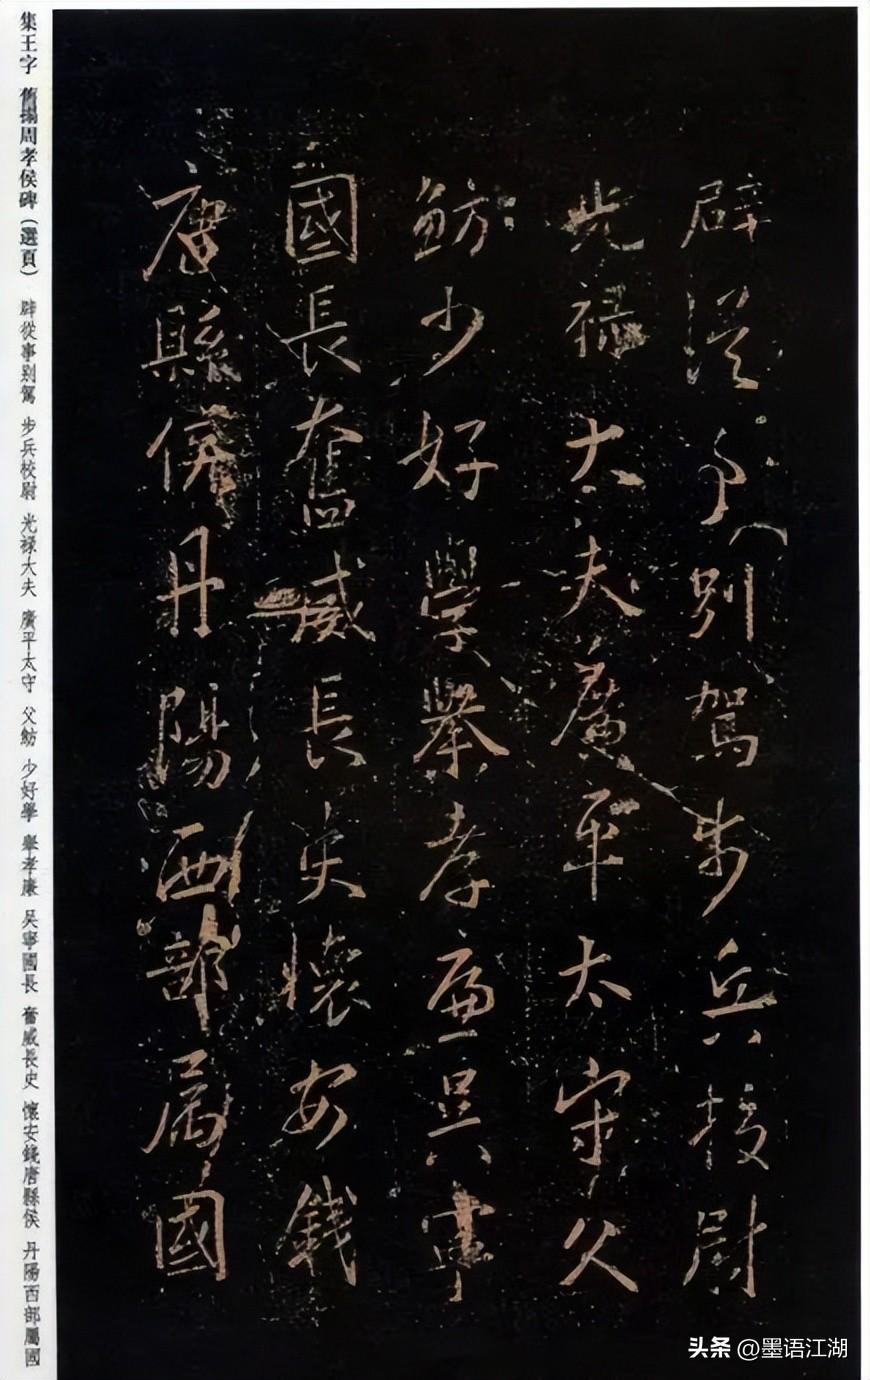 辟從事別駕步兵校尉
光禄大夫廣平太守父
魴少好學舉孝廉吴寧
國長奮威長史懷安錢
唐縣侯丹陽西部属國
集王字 舊搨周孝侯碑（選頁） 辟從事别駕 步兵校尉 光禄大夫 廣平太守 父魴 少好學 舉孝廉 吴寧國長 奮威長史 懷安錢唐縣侯 丹陽西部屬國
头条 @墨语江湖